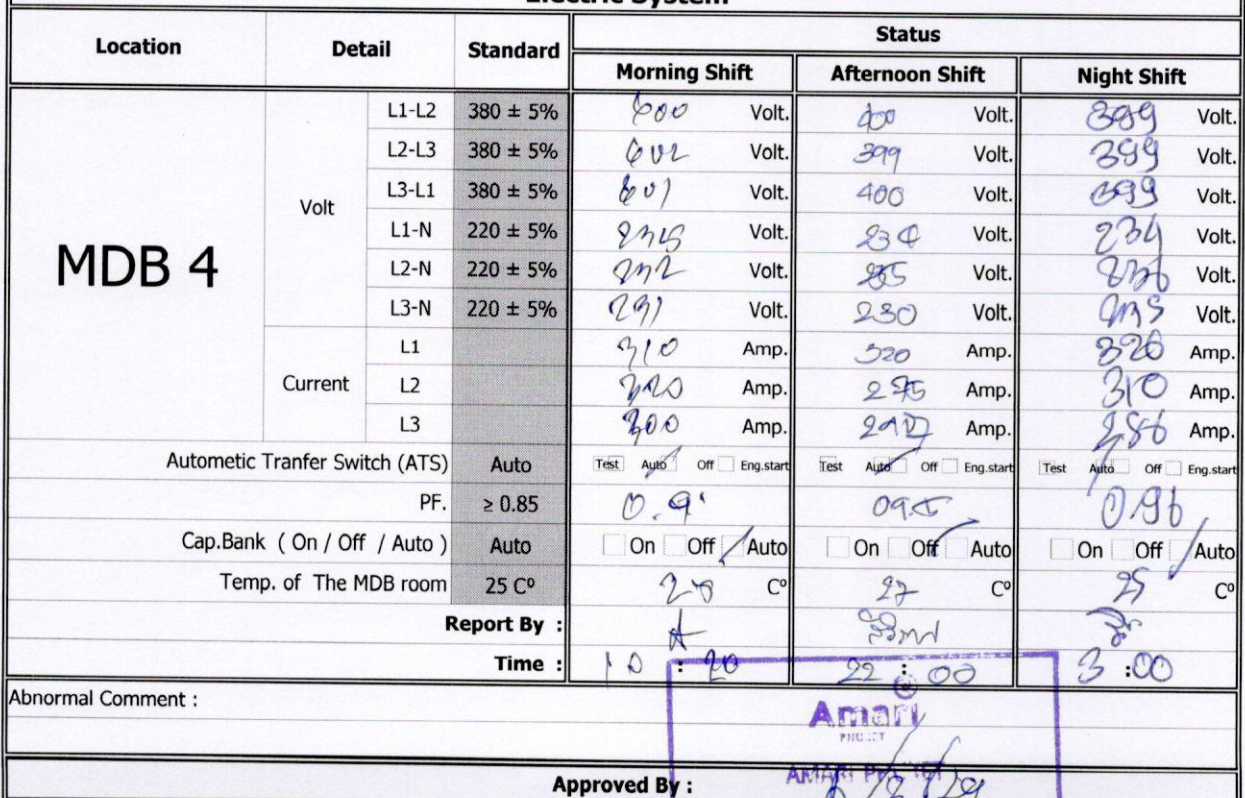 Electric System
Location Detail Standard Status
Morning Shift Afternoon Shift Night Shift
MDB 4
Volt
L1-L2 380 ± 5% 400 Volt. 400 Volt. 399 Volt.
L2-L3 380 ± 5% 402 Volt. 399 Volt. 399 Volt.
L3-L1 380 ± 5% 401 Volt. 400 Volt. 399 Volt.
L1-N 220 ± 5% Volt. 234 Volt. 234 Volt.
L2-N 220 ± 5% 232 Volt. 235 Volt. 236 Volt.
L3-N 220 ± 5% 231 Volt. 230 Volt. 235 Volt.
Current
L1 310 Amp. 320 Amp. 320 Amp.
L2 320 Amp. 275 Amp. 310 Amp.
L3 300 Amp. Amp. 286 Amp.
Autometic Tranfer Switch (ATS) Auto Test Auto Off Eng.start Test Auto Off Eng.start Test Auto Off Eng.start
PF. ≥ 0.85 0.9 09.5 0.96
Cap.Bank ( On / Off / Auto ) Auto On Off Auto On Off Auto On Off Auto
Temp. of The MDB room 25 Cº Cº 27 Cº 25 Cº
Report By :
Time : 10 : 20 22 : 00 3 :00
Abnormal Comment :
Amari
PHUKET
AMARI PHUKET
Approved By :